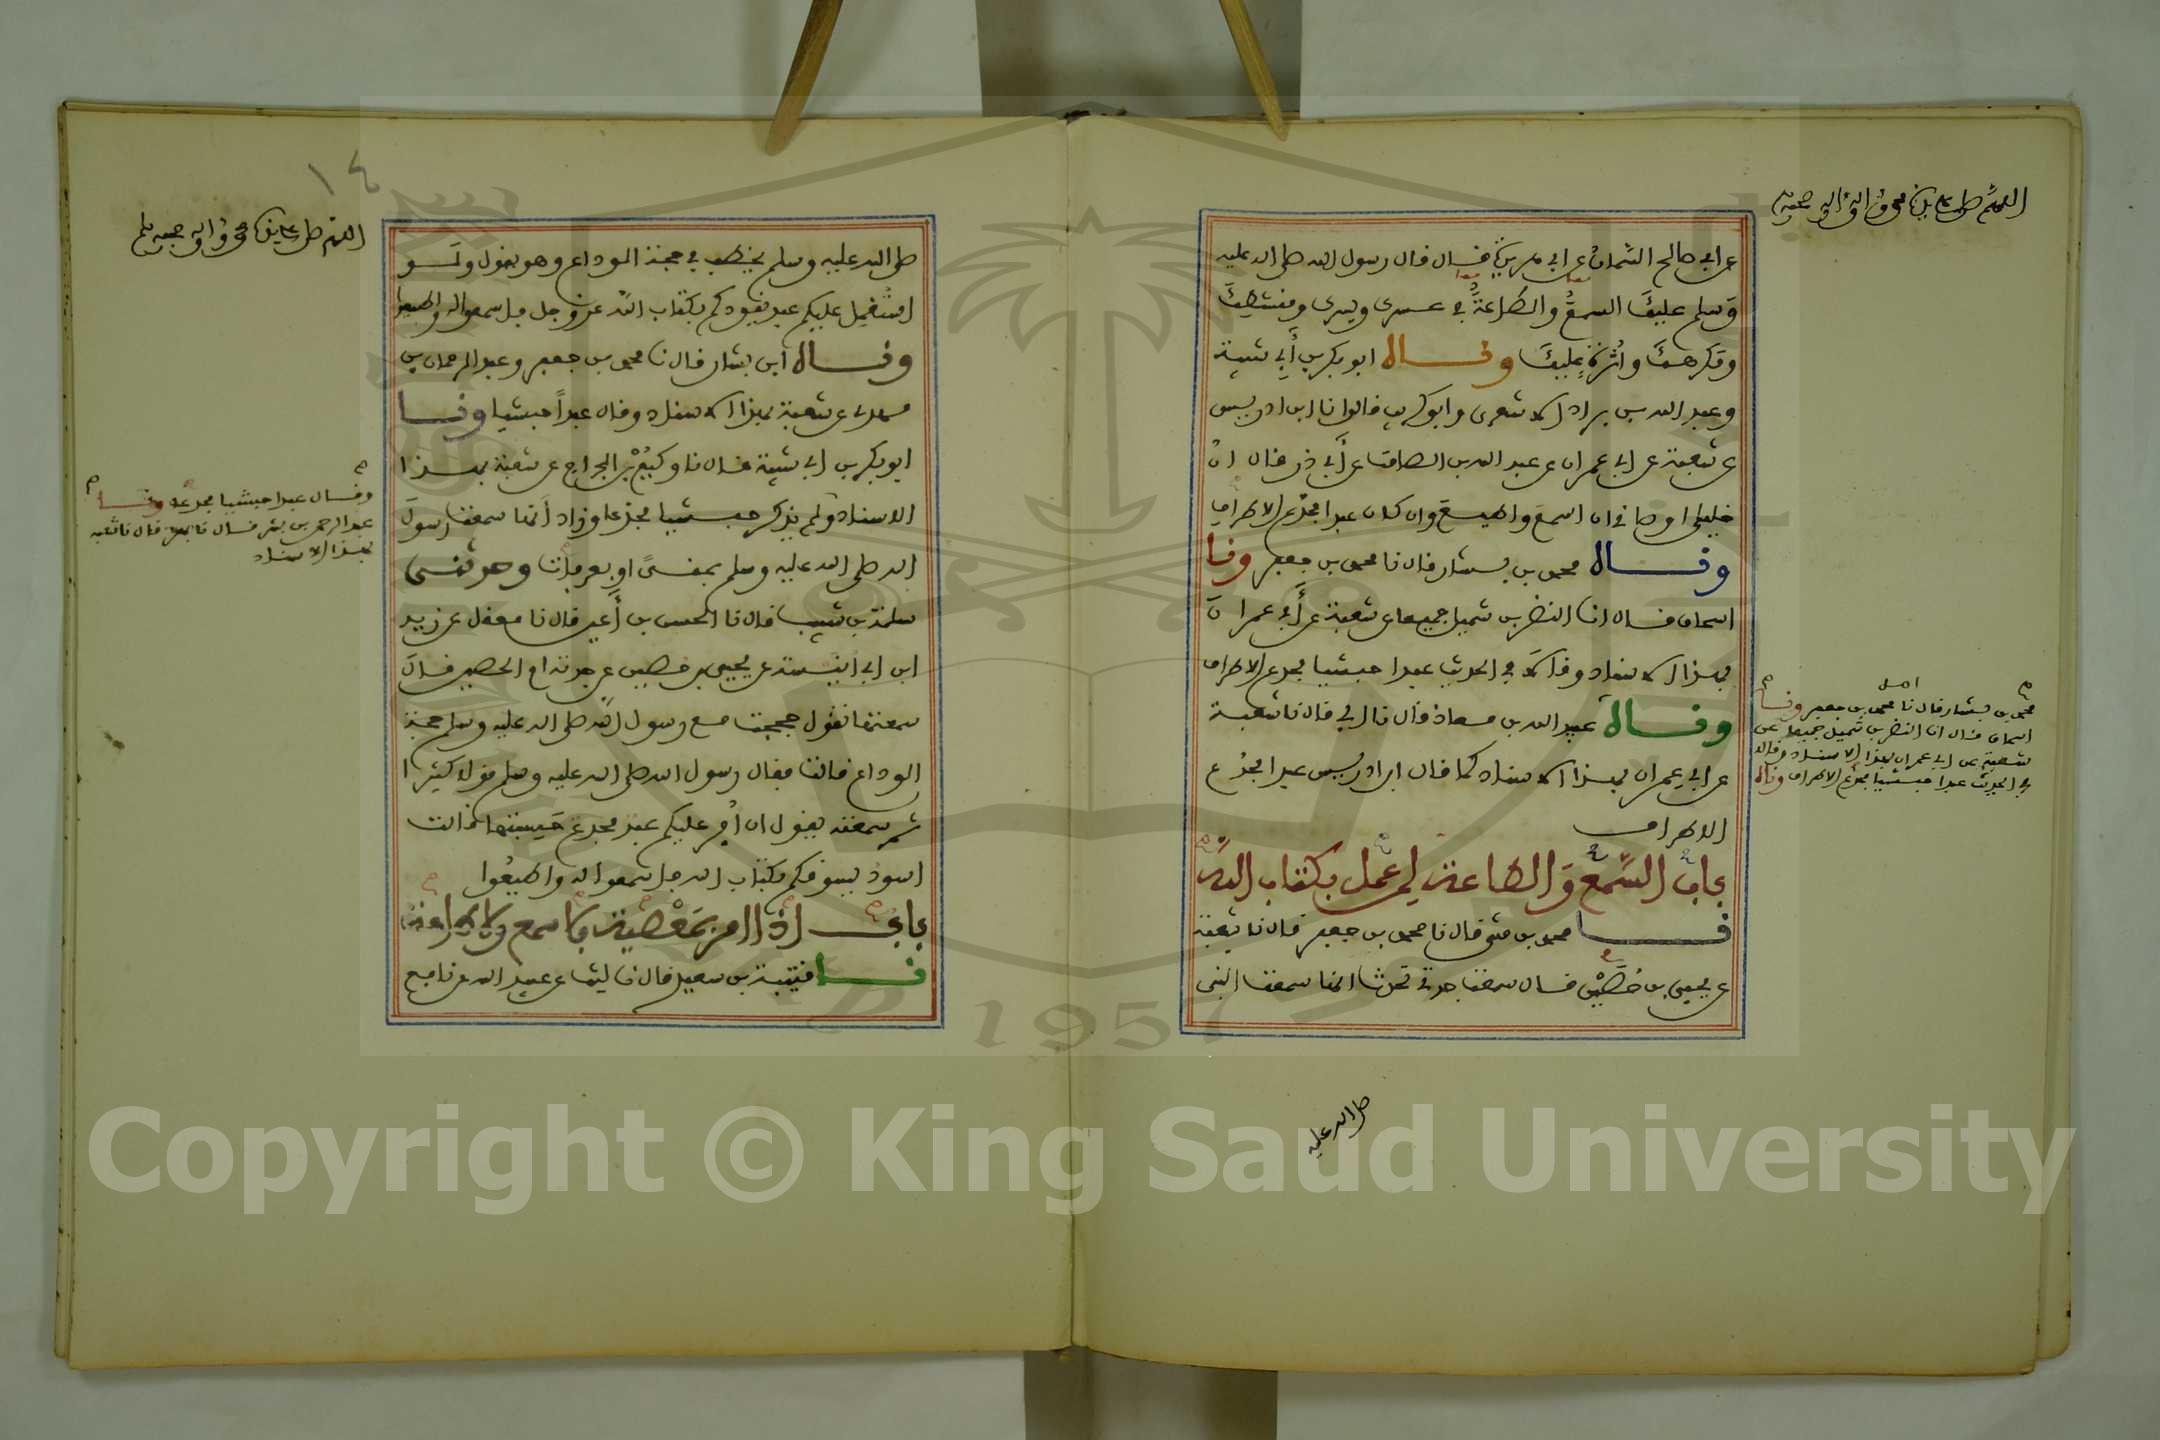 اللهم صل على سيدنا محمد وآله وصحبه
عن ابي صالح السمان عن ابي هريرة قال قال رسول الله صلى الله عليه
وسلم عليك السمع والطاعة في عسرك ويسرك ومنشطك
ومكرهك واثرة عليك وقال ابو بكر بن أبي شيبة
وعبد الله بن براد الاشعري وابو كريب قالوا نا ابن ادريس
عن شعبة عن ابي عمران عن عبد الله بن الصامت عن أبي ذر قال ان
خليلي اوصاني ان اسمع واطيع وان كان عبدا مجدع الاطراف
وقال محمد بن بشار قال نا محمد بن جعفر ونا
اسحاق قال انا النضر بن شميل جميعا عن شعبة عن أبي عمران
بهذا الاسناد وقالا في الحديث عبدا حبشيا مجدع الاطراف
وقال عبيد الله بن معاذ قال نا ابي قال نا شعبة
عن ابي عمران بهذا الاسناد كما قال ابن ادريس عبدا مجدع
الاطراف
باب السمع والطاعة لمن عمل بكتاب الله
نا محمد بن مثنى قال نا محمد بن جعفر قال نا شعبة
عن يحيى بن حصين قال سمعت جدتي تحدث انها سمعت النبي
اصل
محمد بن بشار قال نا محمد بن جعفر ونا
اسحاق قال انا النضر بن شميل جميعا عن
شعبة عن ابي عمران بهذا الاسناد وقالا
في الحديث عبدا حبشيا مجدع الاطراف وقال
صلى الله عليه
١٤
اللهم صل على سيدنا محمد وآله وصحبه وسلم
صلى الله عليه وسلم يخطب في حجة الوداع وهو يقول ولو
استعمل عليكم عبد يقودكم بكتاب الله عز وجل فاسمعوا له واطيعوا
وقال ابن بشار قال نا محمد بن جعفر وعبد الرحمان بن
مهدي عن شعبة بهذا الاسناد وقال عبداً حبشيا ونا
ابو بكر بن ابي شيبة قال نا وكيع بن الجراح عن شعبة بهذا
الاسناد ولم يذكر حبشيا مجدعا وزاد أنها سمعت رسول
الله صلى الله عليه وسلم بمنىً او بعرفات وحدثني
سلمة بن شبيب قال نا الحسن بن أعين قال نا معقل عن زيد
ابن ابي انيسة عن يحيى بن حصين عن جدته ام الحصين قال
سمعتها تقول حججت مع رسول الله صلى الله عليه وسلم حجة
الوداع قالت فقال رسول الله صلى الله عليه وسلم قولا كثيرا
ثم سمعته يقول ان أمر عليكم عبد مجدع حسبتها قالت
اسود يسوقكم بكتاب الله فاسمعوا له واطيعوا
باب اذا امر بمعصية فلا سمع ولا طاعة
نا قتيبة بن سعيد قال نا ليث عن عبيد الله عن نافع
وقال عبدا حبشيا مجدعا ونا
عبد الرحمن بن بشر قال نا بهز قال نا شعبة
بهذا الاسناد
1957
Copyright © King Saud University